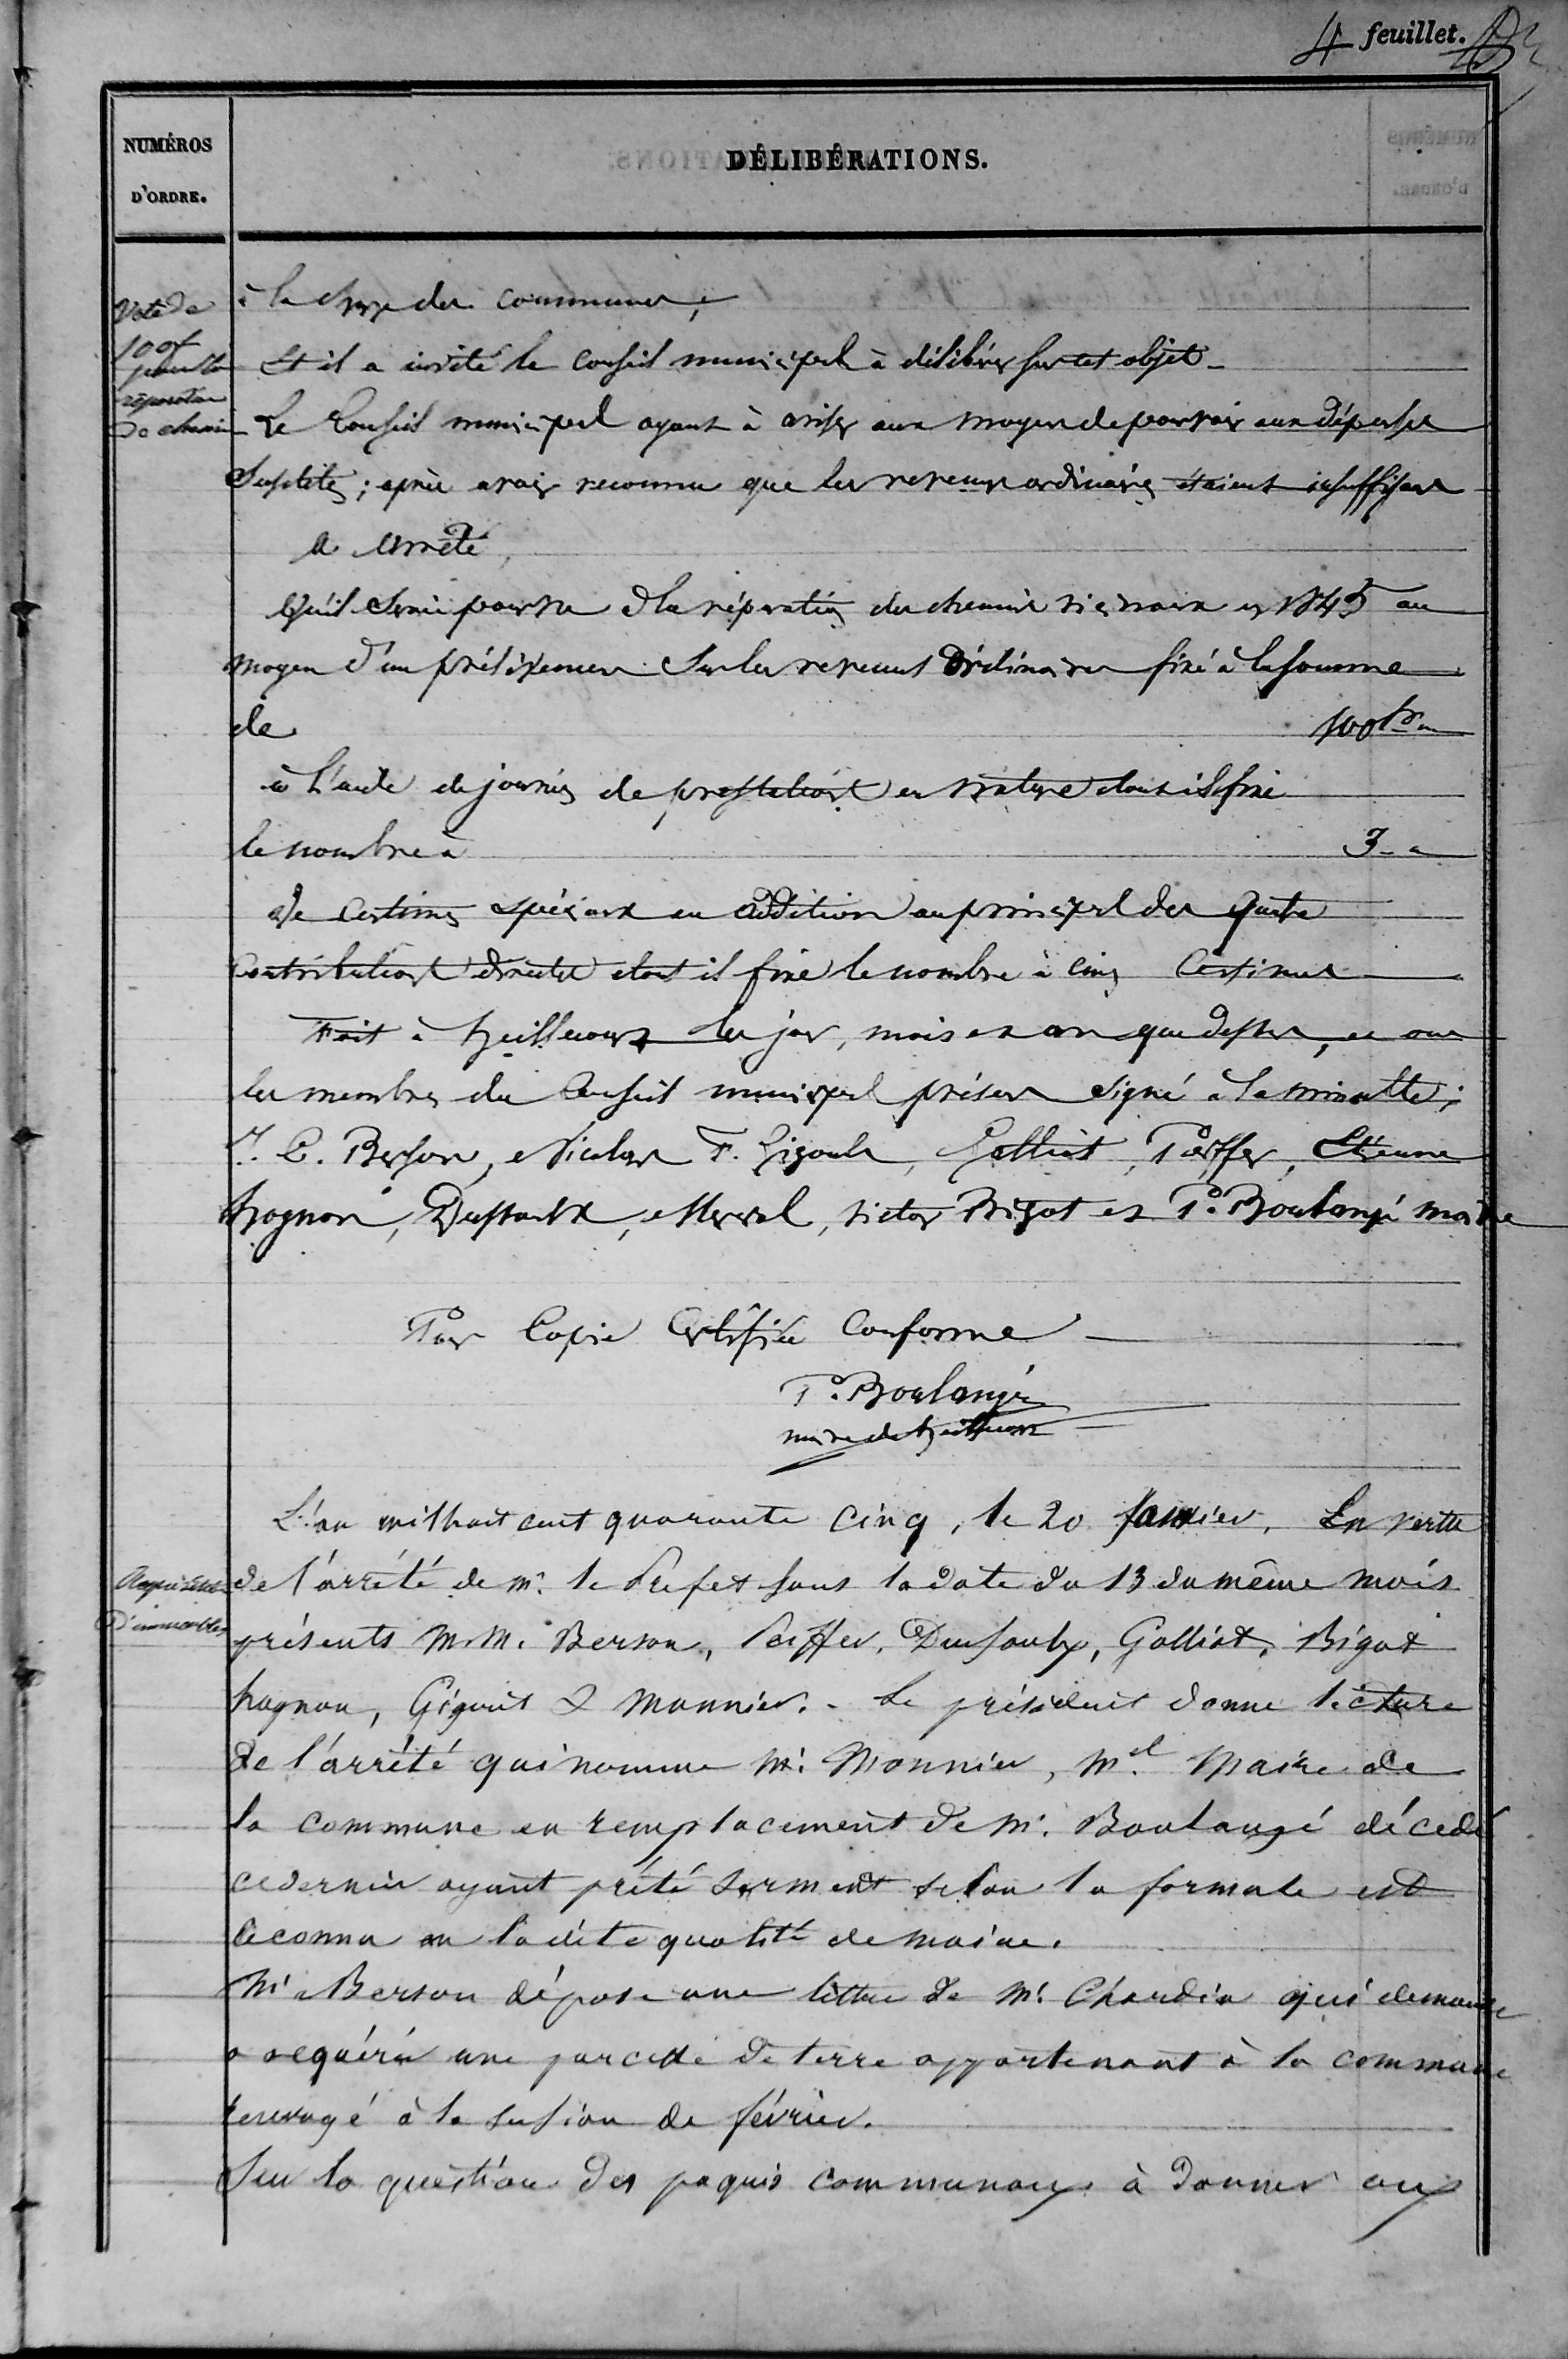 4 feuillet.
NUMÉROS
D'ORDRE.
DÉLIBÉRATIONS.
Vote de
100f
pour la
réparation
de chemin
à la charge des communes,
Et il a invité le Conseil municipal à délibérer sur cet objet.
Le Conseil municipal ayant à aviser aux moyens de pourvoir aux dépenses
susdites; après avoir reconnu que les revenus ordinaires étaient insuffisans
a arrêté,
Qu'il sera pourvu à la réparation des chemins vicinaux en 1845 au
moyen d'un prélèvement sur les revenus ordinaires fixé à la somme
de 100 fr
à l'aide de journées de prestations en nature dont il fixe
le nombre à 3
de Centimes spéciaux en addition au principal des quatre
Contributions directes dont il fixe le nombre à cinq Centimes
Fait à heillecourt les jour, mois et an que dessus, et ont
les membres du Conseil municipal présens signé à la minutte;
J. C. Berson, Nicolas F. Gigoult, Galliot, Peiffer, Etienne
hognon, Dussaulx, Merval, victor Bigot et P. Boulangé maire
Pour Copie Certifiée Conforme
P. Boulangé
maire de heillecourt
L'an mil huit cent quarante cinq, le 20 Janvier, En vertu
Acquisition
d'immeubles
de l'arrêté de mr. le Préfet sous la date du 13 du même mois
présents M.M. Berson, Peiffer, Dussaulx, Galliot, Bigot
hognon, Gigout & Monnier. - Le président donne lecture
de l'arrêté qui nomme Mr. Monnier, Mel. Maire de
la commune en remplacement de Mr. Boulangé décedé
ce dernier ayant prêté serment selon la formule est
reconnu en la dite qualité de maire.
Mr Berson dépose une lettre de Mr. Chardin qui demande
a acquérir une parcelle de terre appartenant à la commune
renvoyé à la session de février.
Sur la question des paquis communaux à donner aux